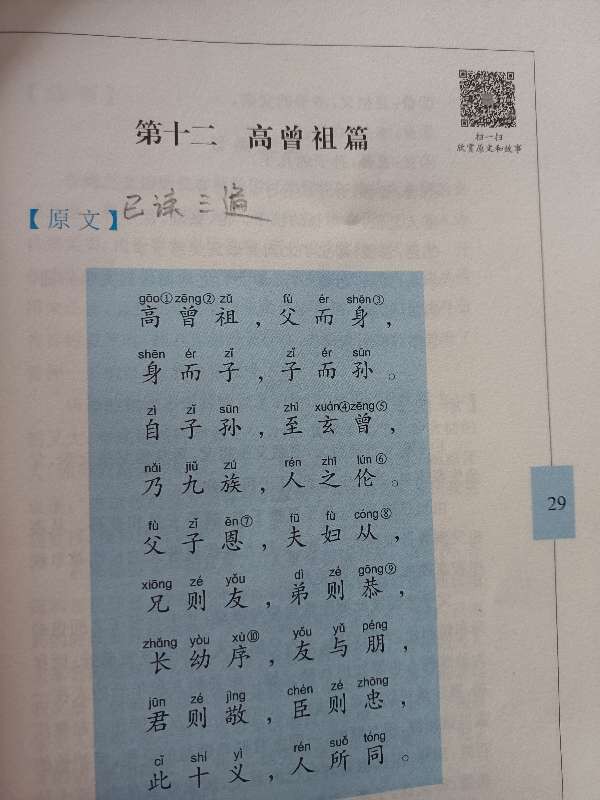 扫一扫
欣赏原文和故事
第十二 高曾祖篇
【原文】已读三遍
gāo① zēng② zǔ fù ér shēn③
高曾祖，父而身，
shēn ér zǐ zǐ ér sūn
身而子，子而孙。
zì zǐ sūn zhì xuán④ zēng⑤
自子孙，至玄曾，
nǎi jiǔ zú rén zhī lún⑥
乃九族，人之伦。
fù zǐ ēn⑦ fū fù cóng⑧
父子恩，夫妇从，
xiōng zé yǒu dì zé gōng⑨
兄则友，弟则恭，
zhǎng yòu xù⑩ yǒu yǔ péng
长幼序，友与朋，
jūn zé jìng chén zé zhōng
君则敬，臣则忠，
cǐ shí yì rén suǒ tóng
此十义，人所同。
29